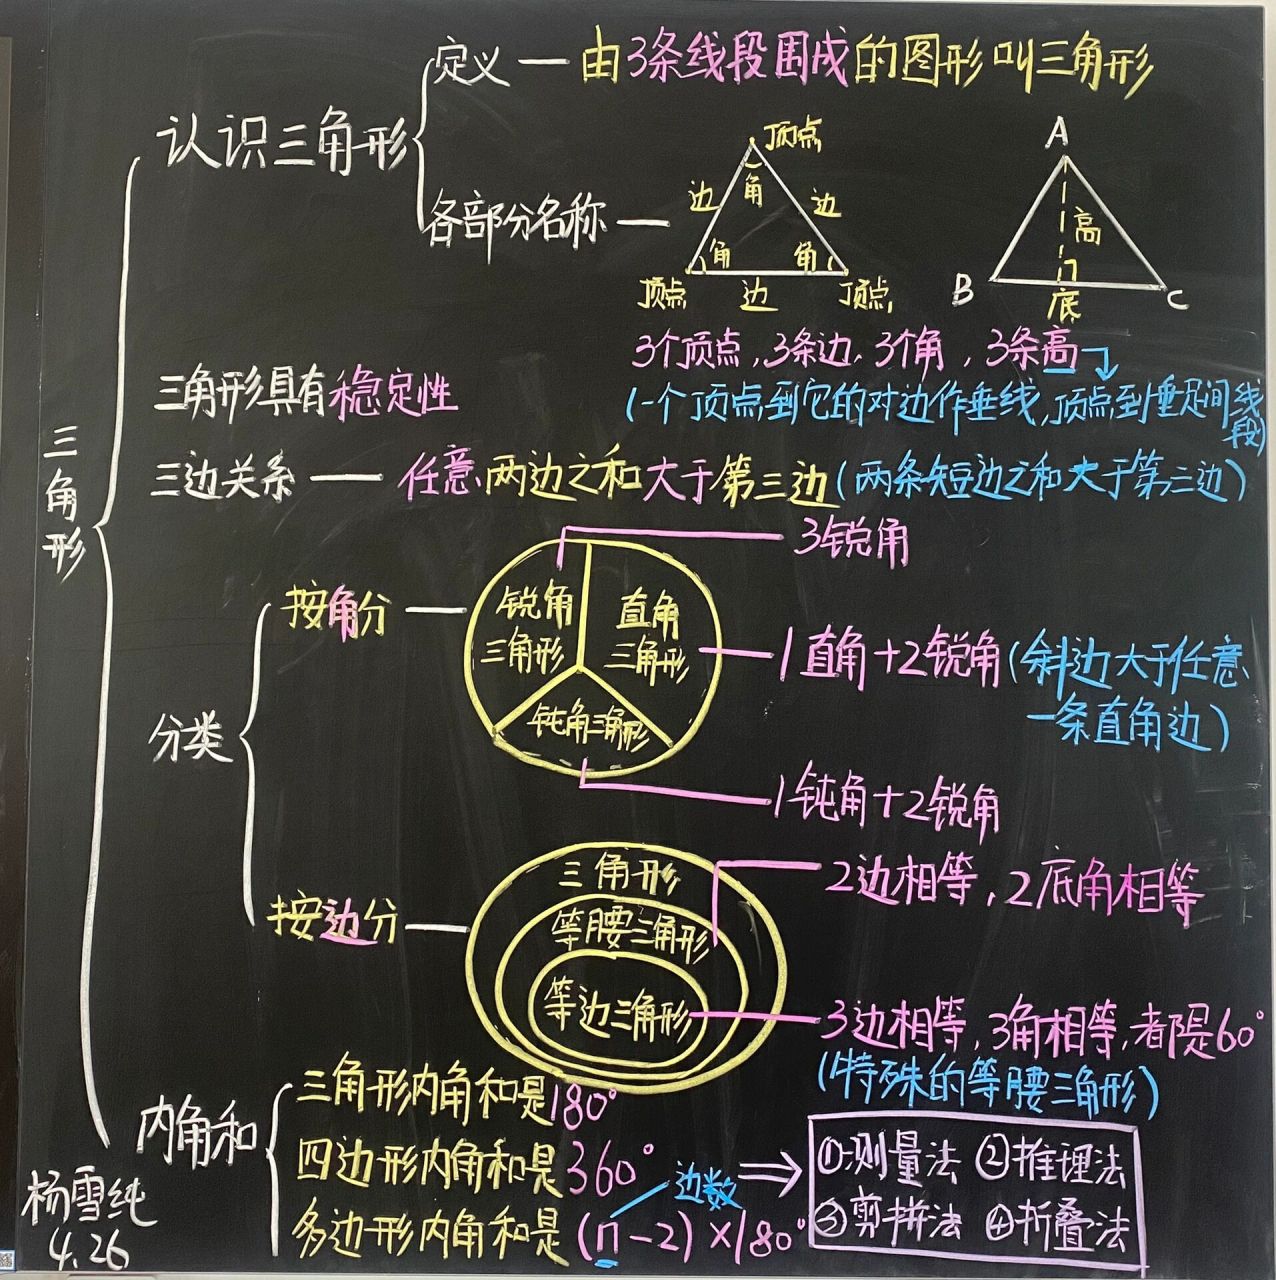 三角形
认识三角形
定义 — 由3条线段围成的图形叫三角形
各部分名称 —
顶点
边 角 边
角 角
顶点 边 顶点
A
高
B 底 C
3个顶点,3条边,3个角,3条高
(一个顶点到它的对边作垂线,顶点到垂足间线段)
三角形具有稳定性
三边关系 — 任意两边之和大于第三边(两条短边之和大于第三边)
分类
按角分 —
锐角三角形
3锐角
直角三角形
1直角+2锐角(斜边大于任意
一条直角边)
钝角三角形
1钝角+2锐角
按边分 —
三角形
等腰三角形
2边相等,2底角相等
等边三角形
3边相等,3角相等,都是60°
(特殊的等腰三角形)
内角和
三角形内角和是180°
四边形内角和是360°
边数
多边形内角和是(n-2)×180°
⇒
①测量法 ②推理法
③剪拼法 ④折叠法
杨雪纯
4.26